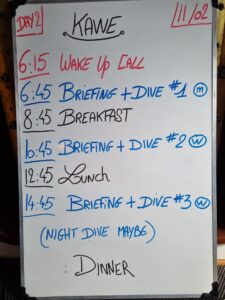 DAY 2
KAWE
11/02
6:15 WAKE UP CALL
6:45 BRIEFING + DIVE #1 m
8:45 BREAKFAST
10:45 BRIEFING + DIVE #2 W
12:45 Lunch
14:45 BRIEFING + DIVE #3 W
(NIGHT DIVE MAYBE)
: DINNER